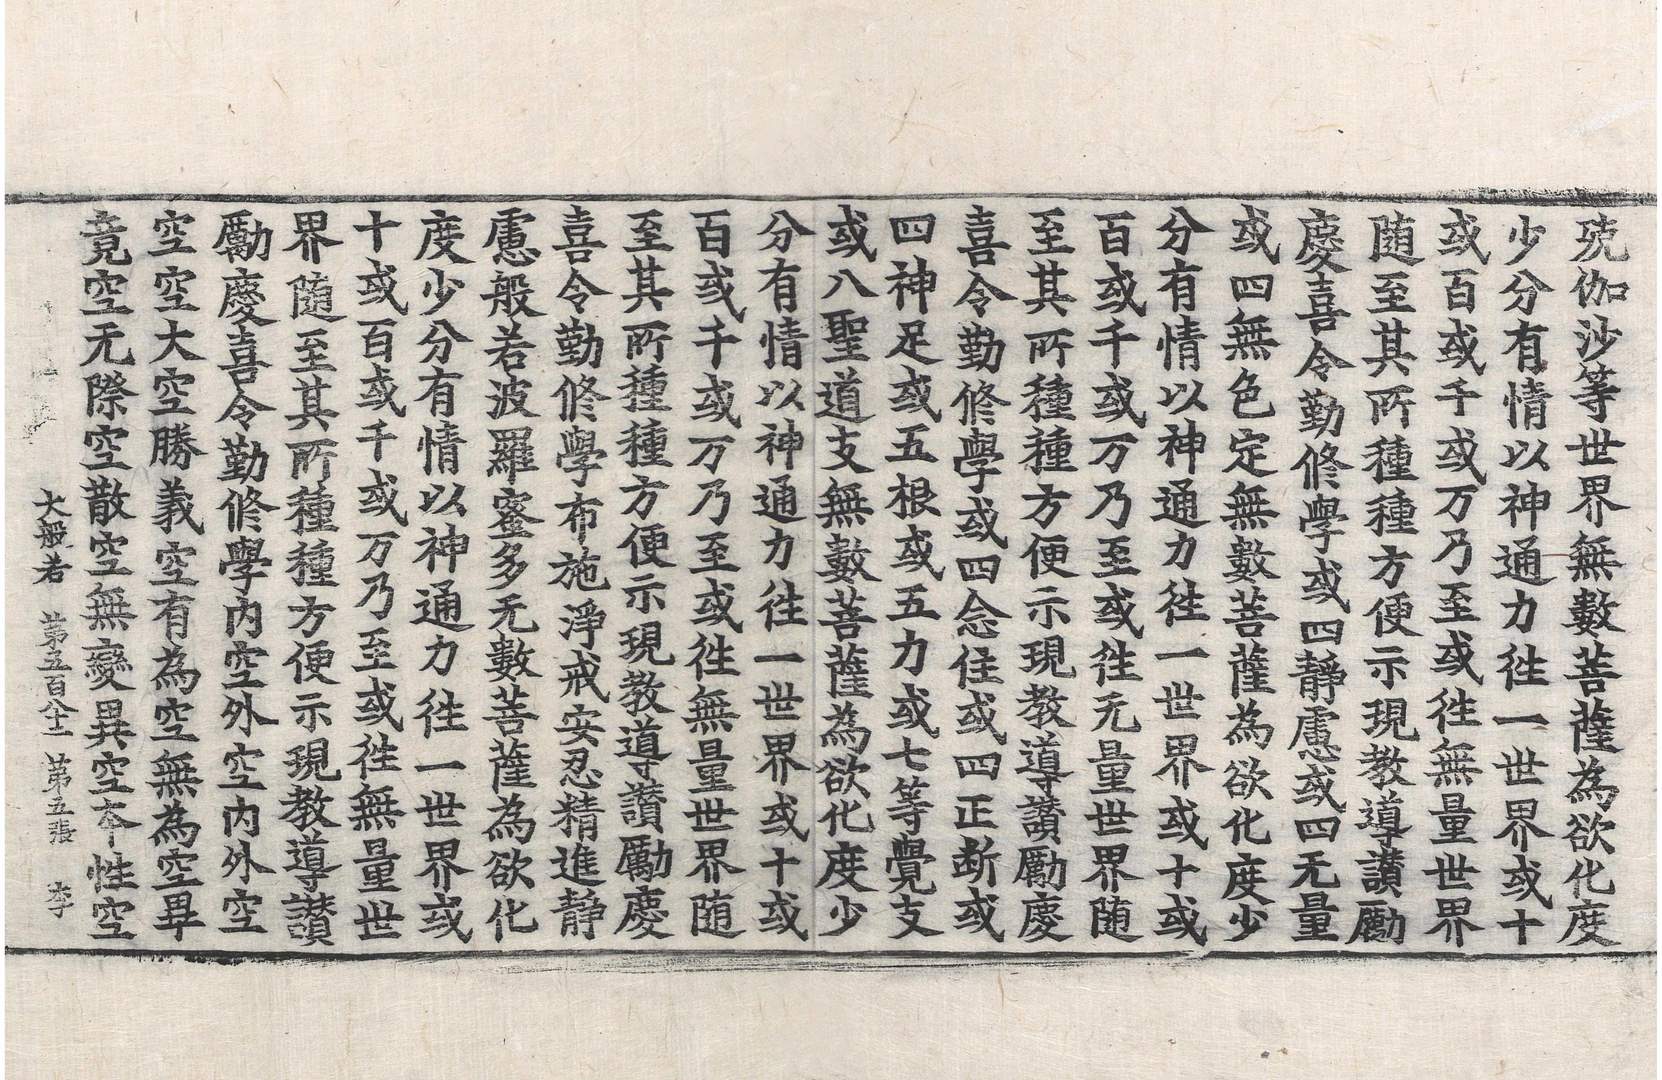 殑伽沙等世界無數菩薩為欲化度
少分有情以神通力徃一世界或十
或百或千或万乃至或徃無量世界
随至其所種種方便示現教導讃勵
慶喜令勤修學或四靜慮或四无量
或四無色定無數菩薩為欲化度少
分有情以神通力徃一世界或十或
百或千或万乃至或徃无量世界随
至其所種種方便示現教導讃勵慶
喜令勤修學或四念住或四正断或
四神足或五根或五力或七等覺支
或八聖道支無數菩薩為欲化度少
分有情以神通力徃一世界或十或
百或千或万乃至或徃無量世界随
至其所種種方便示現教導讃勵慶
喜令勤修學布施淨戒安忍精進静
慮般若波羅蜜多无數菩薩為欲化
度少分有情以神通力徃一世界或
十或百或千或万乃至或徃無量世
界随至其所種種方便示現教導讃
勵慶喜令勤修學内空外空内外空
空空大空勝義空有為空無為空畢
竟空无際空散空無變異空夲性空
大般若 第五百八十二 第五張 李